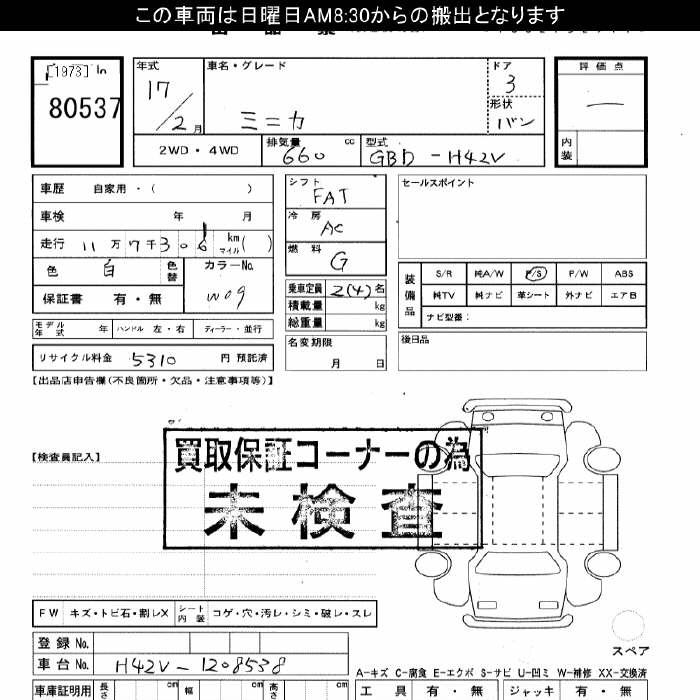 この車両は日曜日AM8:30からの搬出となります
[1973] In
80537
年式 車名・グレード ドア 評価点
17/2月 ミニカ 3
形状
バン
2WD・4WD 排気量 660 cc 型式 GBD-H42V 内装
車歴 自家用・( )
車検 年 月
走行 11万7千306 km マイル( )
色 白 色替 カラーNo. W09
保証書 有・無
シフト FAT
冷房 AC
燃料 G
乗車定員 2(4)名
積載量 kg
総重量 kg
セールスポイント
装備品 S/R 純A/W P/S P/W ABS
純TV 純ナビ 革シート 外ナビ エアB
ナビ型番:
モデル年式 年 ハンドル 左・右 ディーラー・並行
名変期限 月 日
後日品
リサイクル料金 5310 円 預託済
【出品店申告欄(不良箇所・欠品・注意事項等)】
【検査員記入】
買取保証コーナーの為
未検査
FW キズ・トビ石・割レX シート内装 コゲ・穴・汚レ・シミ・破レ・スレ
スペア
登録No.
車台No. H42V-1208538
A-キズ C-腐食 E-エクボ S-サビ U-凹ミ W-補修 XX-交換済
車庫証明用 長さ cm 幅 cm 高さ cm 工具 有・無 ジャッキ 有・無